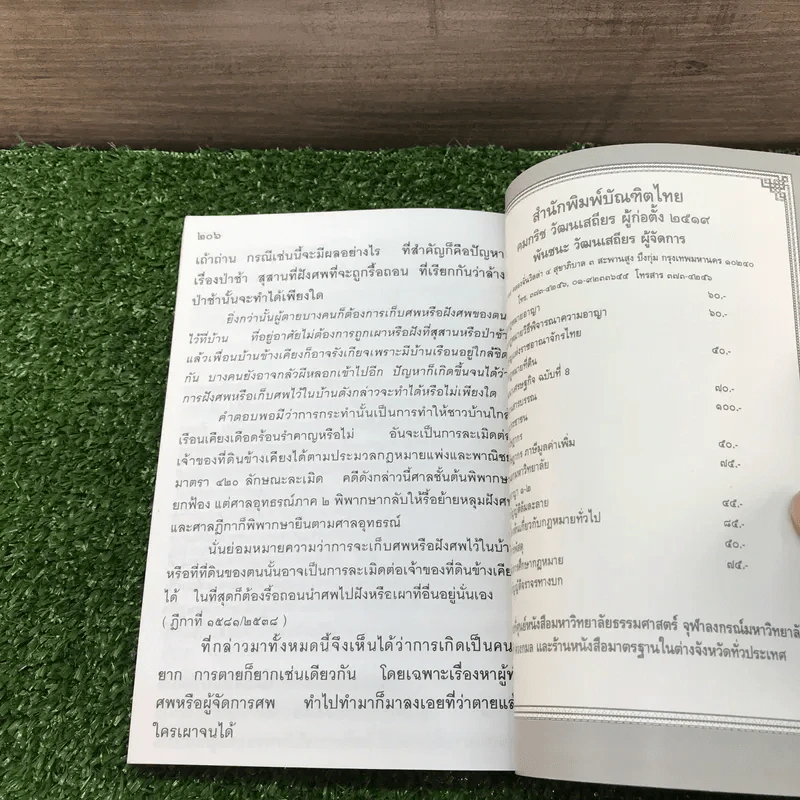 ๒๐๖
เถ้าถ่าน กรณีเช่นนี้จะมีผลอย่างไร ที่สำคัญก็คือปัญหา
เรื่องป่าช้า สุสานที่ฝังศพที่จะถูกรื้อถอน ที่เรียกกันว่าล้าง
ป่าช้านั้นจะทำได้เพียงใด
ยิ่งกว่านั้นผู้ตายบางคนก็ต้องการเก็บศพหรือฝังศพของตน
ไว้ที่บ้าน ที่อยู่อาศัยไม่ต้องการถูกเผาหรือฝังที่สุสานหรือป่าช้า
แล้วเพื่อนบ้านข้างเคียงก็อาจรังเกียจเพราะมีบ้านเรือนอยู่ใกล้ชิด
กัน บางคนยังอาจกลัวผีหลอกเข้าไปอีก ปัญหาก็เกิดขึ้นจนได้ว่า
การฝังศพหรือเก็บศพไว้ในบ้านดังกล่าวจะทำได้หรือไม่เพียงใด
คำตอบพอมีว่าการกระทำนั้นเป็นการทำให้ชาวบ้านใกล้
เรือนเคียงเดือดร้อนรำคาญหรือไม่ อันจะเป็นการละเมิดต่อ
เจ้าของที่ดินข้างเคียงได้ตามประมวลกฎหมายแพ่งและพาณิชย์
มาตรา ๔๒๐ ลักษณะละเมิด คดีดังกล่าวนี้ศาลชั้นต้นพิพากษา
ยกฟ้อง แต่ศาลอุทธรณ์ภาค ๒ พิพากษากลับให้รื้อย้ายหลุมฝังศพ
และศาลฎีกาก็พิพากษายืนตามศาลอุทธรณ์
นั่นย่อมหมายความว่าการจะเก็บศพหรือฝังศพไว้ในบ้าน
หรือที่ที่ดินของตนนั้นอาจเป็นการละเมิดต่อเจ้าของที่ดินข้างเคียง
ได้ ในที่สุดก็ต้องรื้อถอนนำศพไปฝังหรือเผาที่อื่นอยู่นั่นเอง
( ฎีกาที่ ๑๕๘๑/๒๕๓๘ )
ที่กล่าวมาทั้งหมดนี้จึงเห็นได้ว่าการเกิดเป็นคน
ยาก การตายก็ยากเช่นเดียวกัน โดยเฉพาะเรื่องหาผู้
ศพหรือผู้จัดการศพ ทำไปทำมาก็มาลงเอยที่ว่าตายแล้
ใครเผาจนได้
สำนักพิมพ์บัณฑิตไทย
คมกริช วัฒนเสถียร ผู้ก่อตั้ง ๒๕๑๙
พันชนะ วัฒนเสถียร ผู้จัดการ
๔ สุขาภิบาล ๓ สะพานสูง บึงกุ่ม กรุงเทพมหานคร ๑๐๒๔๐
โทร. ๓๗๓-๔๒๕๖, ๐๑-๙๒๓๓๖๔๔ โทรสาร ๓๗๓-๔๒๕๖
อาญา ๖๐.-
วิธีพิจารณาความอาญา ๖๐.-
ราชอาณาจักรไทย
ที่ดิน ๕๐.-
เศรษฐกิจ ฉบับที่ 8
สารบรรณ ๗๐.-
๑๐๐.-
ภาษีมูลค่าเพิ่ม ๕๐.-
มหาวิทยาลัย ๗๕.-
๑-๒
ล้มละลาย ๔๕.-
เกี่ยวกับกฎหมายทั่วไป ๘๕.-
๕๐.-
ศึกษากฎหมาย ๗๕.-
จราจรทางบก
ศูนย์หนังสือมหาวิทยาลัยธรรมศาสตร์ จุฬาลงกรณ์มหาวิทยาลัย
และร้านหนังสือมาตรฐานในต่างจังหวัดทั่วประเทศ